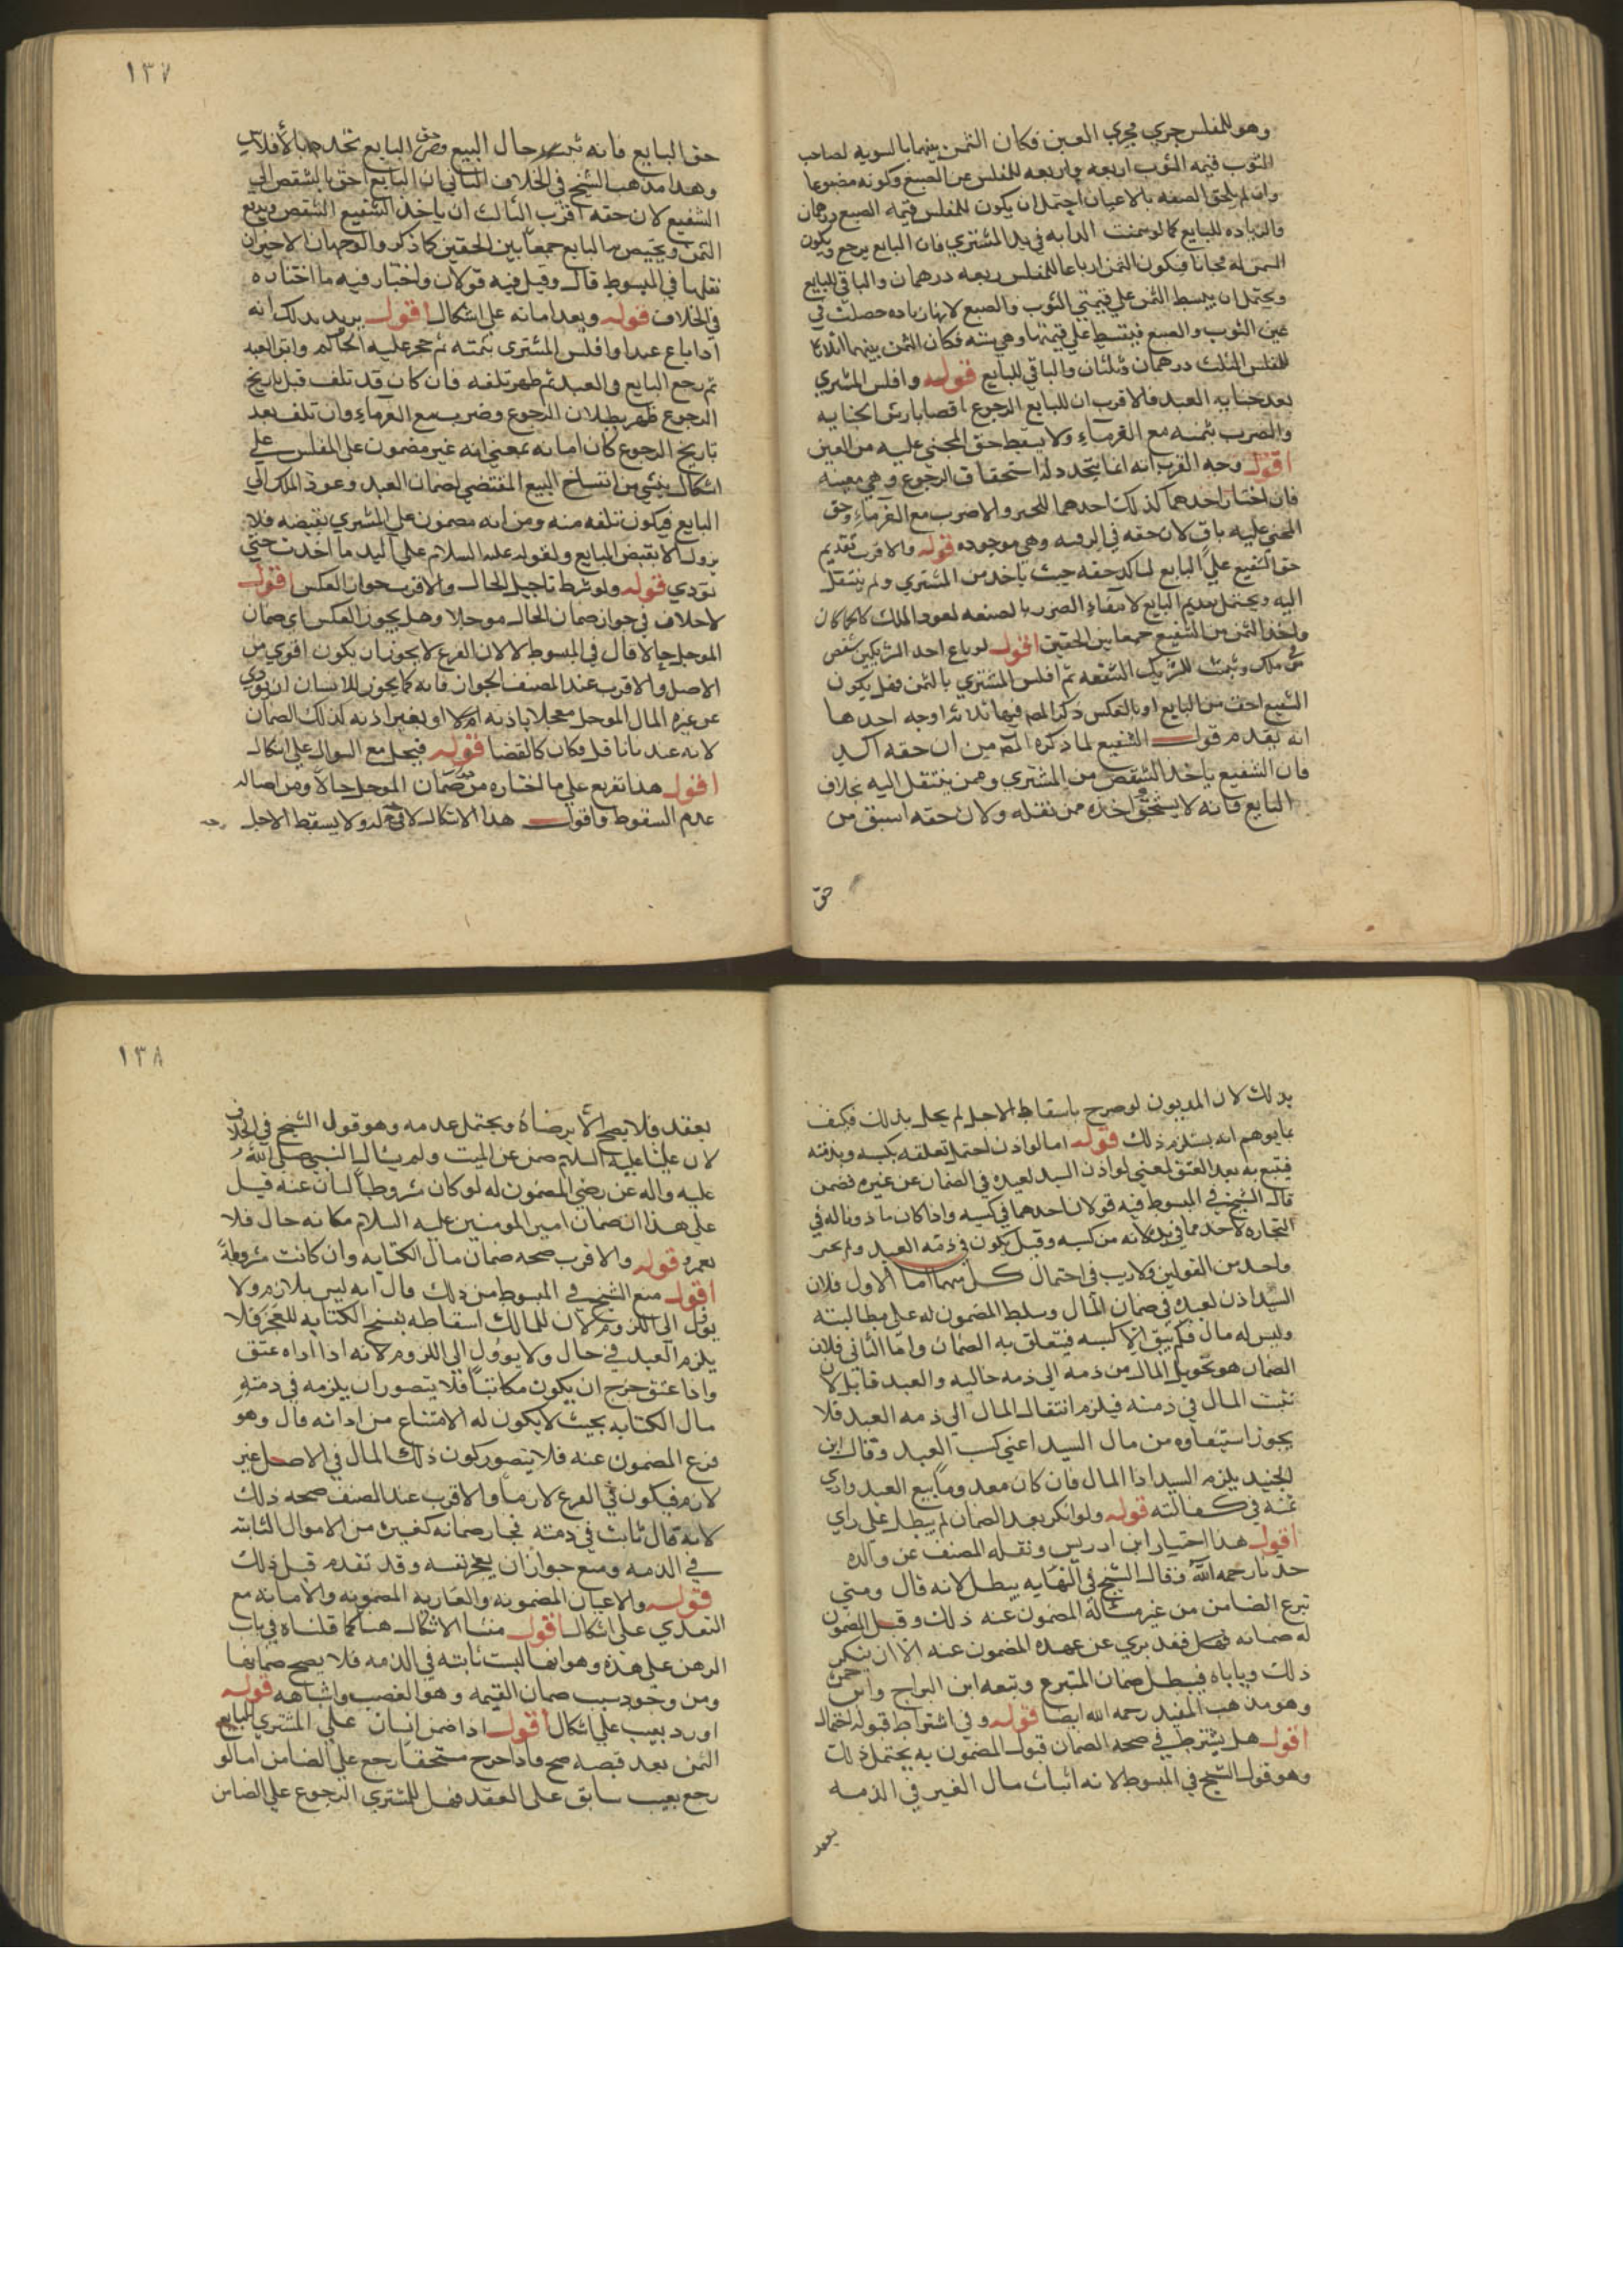 وهو للمفلس جري مجري العين فكان الثمن بينهما بالسويه لصاحب
الثوب قيمه الثوب اربعه واربعه للمفلس عن الصبغ وكونه مصبوغا
وان لم يلحق الصنعه بالاعيان احتمل ان يكون للمفلس قيمه الصبغ درهمان
والزياده للبايع كما لو سمنت الدابه في يد المشتري فان البايع يرجع ويكون
السمن له مجانا فيكون الثمن ارباعا للمفلس ربعه درهمان والباقي للبايع
ويحتمل ان يبسط الثمن علي قيمتي الثوب والصبغ لانها زياده حصلت في
عين الثوب والصبغ فيقسط علي قيمتهما وهي سته فكان الثمن بينهما اثلاثا
للمفلس الثلث درهمان وثلثان والباقي للبايع قوله وافلس المشتري
بعد جنايه العبد فالاقرب ان للبايع الرجوع ناقصا بارش الجنايه
والضرب بثمنه مع الغرماء ولا يسقط حق المجني عليه من العين
اقول وجه القرب انه انما يتجدد له استحقاق الرجوع وهي معيبه
فان اختار اخدهما كذلك اخدهما للخبر والا ضرب مع الغرماء وحق
المجني عليه باق لان حقه في الرقبه وهي موجوده قوله والاقرب تقديم
حق الشفيع علي البايع لتاكد حقه حيث ياخد من المشتري ولم ينتقل
اليه ويحتمل تقديم البايع لانتفاء الضرر بالصنعه لعود الملك كما كان
واخد الثمن من الشفيع جمعا بين الحقين اقول لو باع احد الشريكين شقص
في ملك وثبت للشريك الشفعه ثم افلس المشتري بالثمن فهل يكون
الشفيع احق من البايع او بالعكس ذكر المص فيها ثلاثه اوجه احدها
انه يقدم قول الشفيع لما ذكره المص من ان حقه اكد
فان الشفيع ياخد الشقص من المشتري وممن ينتقل اليه بخلاف
البايع فانه لا يستحق اخده ممن نقله ولان حقه اسبق من
حق
١٣٧
حق البايع فانه ثبت حال البيع وحق البايع تجدد بالافلاس
وهدا مدهب الشيخ في الخلاف الثاني ان البايع احق بالشقص الي
الشفيع لان حقه اقرب الثالث ان ياخد الشفيع الشقص ويدفع
الثمن ويختص به البايع جمعا بين الحقين كما ذكر والوجهان الاخيران
نقلهما في المبسوط قال وقيل فيه قولان واختار فيه ما اختاره
في الخلاف قوله وبعد امانه علي اشكال اقول يريد بدلك انه
ادا باع عبدا وافلس المشتري بثمنه ثم حجر عليه الحاكم وابق العبد
ثم رجع البايع في العبد ثم ظهر تلفه فان كان قد تلف قبل تاريخ
الرجوع ظهر بطلان الرجوع وضرب مع الغرماء وان تلف بعد
تاريخ الرجوع كان امانه بمعني انه غير مضمون علي المفلس علي
اشكال ينشي من انفساخ البيع المقتضي لضمان العبد وعود الملك الي
البايع فيكون تلفه منه ومن انه مضمون علي المشتري بقبضه فلا
يزول الا بقبض البايع ولقوله عليه السلام علي اليد ما اخدت حتي
تودي قوله ولو شرط تاجيل الحال والاقرب جواز العكس اقول
لا خلاف في جواز ضمان الحال موجلا وهل يجوز العكس اي ضمان
الموجل حالا قال في المبسوط لا لان الفرع لا يجوز ان يكون اقوي من
الاصل والاقرب عند المصنف الجواز فانه كما يجوز للانسان ان يودي
عن غيره المال الموجل معجلا باذنه ام لا او بغير اذنه كذلك الضمان
لانه عندنا ناقل فكان كالقضا قوله فيحل مع السوال علي اشكال
اقول هدا تفريع علي ما اختاره من ضمان الموجل حالا ومن اصاله
عدم السقوط واقول هدا الاشكال لا في قوله ولا يسقط الاجل
بدلك لان المديون لو صرح باسقاط الاجل لم يحل بدلك فكيف
بما يوهم انه يستلزم ذلك قوله اما لو اذن احتمل تعلقه بكسبه وبذمته
فيتبع به بعد العتق يعني لو اذن السيد لعبده في الضمان عن غيره فضمن
قال الشيخ في المبسوط فيه قولان احدهما في كسبه واذا كان ماذونا له في
التجاره لاحد مما في يده لانه من كسبه وقيل يكون في ذمه العبد ولم يختر
واحد من القولين ولا ريب في احتمال كل منهما اما الاول فلان
السيد اذن لعبده في ضمان المال وسلط المضمون له علي مطالبته
وليس له مال فلم يبق الا كسبه فيتعلق به الضمان واما الثاني فلان
الضمان هو تحويل المال من ذمه الي ذمه خاليه والعبد قابل لان
يثبت المال في ذمته فيلزم انتقال المال الي ذمه العبد فلا
يجوز استيفاوه من مال السيد اعني كسب العبد وقال ابن
الجنيد يلزم السيد ادا المال فان كان معدوما بيع العبد وادي
ثمنه في كفالته قوله ولو انكر بعد الضمان لم يبطل علي راي
اقول هدا اختيار ابن ادريس ونقله المصنف عن والده
جدنا رحمه الله وقال الشيخ في النهايه يبطل لانه قال ومتي
تبرع الضامن من غير مساله المضمون عنه ذلك وقبل المضمون
له ضمانه فقد بري عن عهده المضمون عنه الا ان ينكر
ذلك وياباه فيبطل ضمان المتبرع وتبعه ابن البراج وابن حمزه
وهو مذهب المفيد رحمه الله ايضا قوله وفي اشتراط قبوله احتمال
اقول هل يشترط في صحه الضمان قبول المضمون به يحتمل ذلك
وهو قول الشيخ في المبسوط لانه اثبات مال الغير في الذمه
بعقد
١٣٨
بعقد فلا يصح الا برضاه ويحتمل عدمه وهو قول الشيخ في الخلاف
لان عليا عليه السلام ضمن عن الميت ولم يسال النبي صلي الله
عليه واله عن رضي المضمون له لو كان شروطا لسال عنه قيل
علي هذا ان ضمان امير المومنين عليه السلام مكانه حال فلا
يعم قوله والاقرب صحه ضمان مال الكتابه وان كانت مشروطه
اقول منع الشيخ في المبسوط من ذلك قال انه ليس بلازم ولا
يوول الي اللزوم لان للمالك اسقاطه بفسخ الكتابه للعجز فلا
يلزم العبد في حال ولا يوول الي اللزوم لانه اذا اداه عتق
واذا عتق خرج ان يكون مكاتبا فلا يتصور ان يلزمه في ذمته
مال الكتابه بحيث لا يكون له الامتناع من ادائه قال وهو
فرع المضمون عنه فلا يتصور كون ذلك المال في الاصل غير
لازم فيكون في الفرع لازما والاقرب عند المصنف صحه ذلك
لانه مال ثابت في ذمته فجاز ضمانه كغيره من الاموال الثابته
في الذمه ومنع جواز ان يعجز نفسه وقد تقدم قبل ذلك
قوله والاعيان المضمونه والعاريه المضمونه والامانه مع
التعدي علي اشكال اقول منشا الاشكال هنا كما قلناه في باب
الرهن علي هذه وهو انها ليست ثابته في الذمه فلا يصح ضمانها
ومن وجود سبب ضمان القيمه وهو الغصب واشباهه قوله
او رد بعيب علي اشكال اقول اذا ضمن انسان علي المشتري للبايع
الثمن بعد قبضه صح فاذا خرج مستحقا رجع علي الضامن اما لو
رجع بعيب سابق علي العقد فهل للمشتري الرجوع علي الضامن